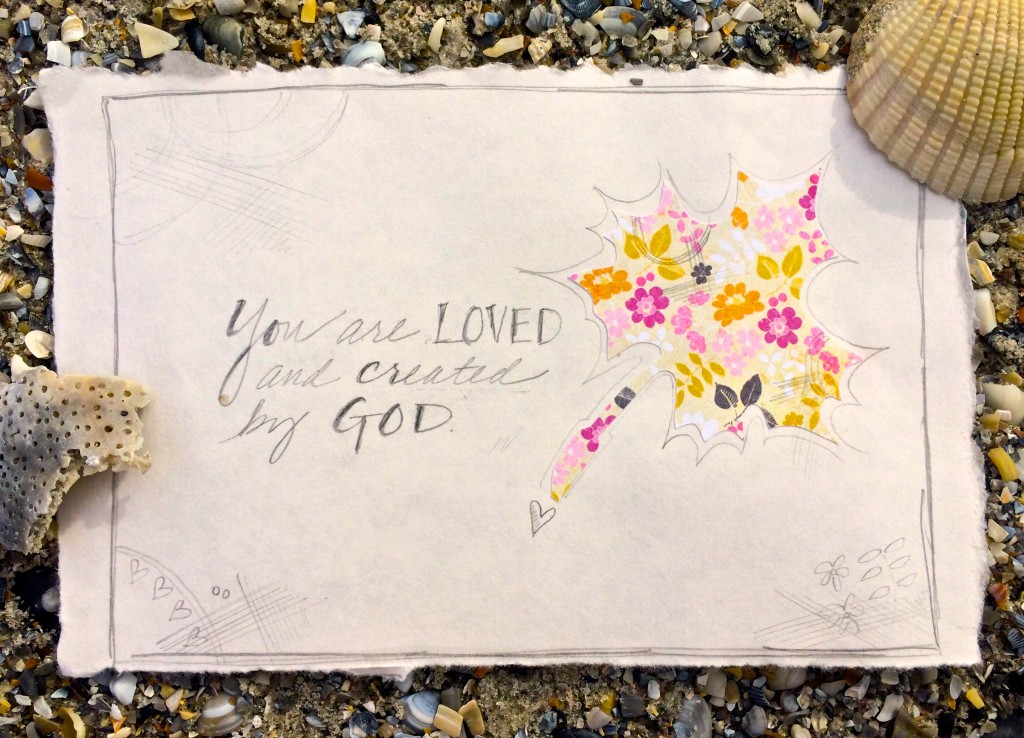 You are LOVED
and created
by GOD.